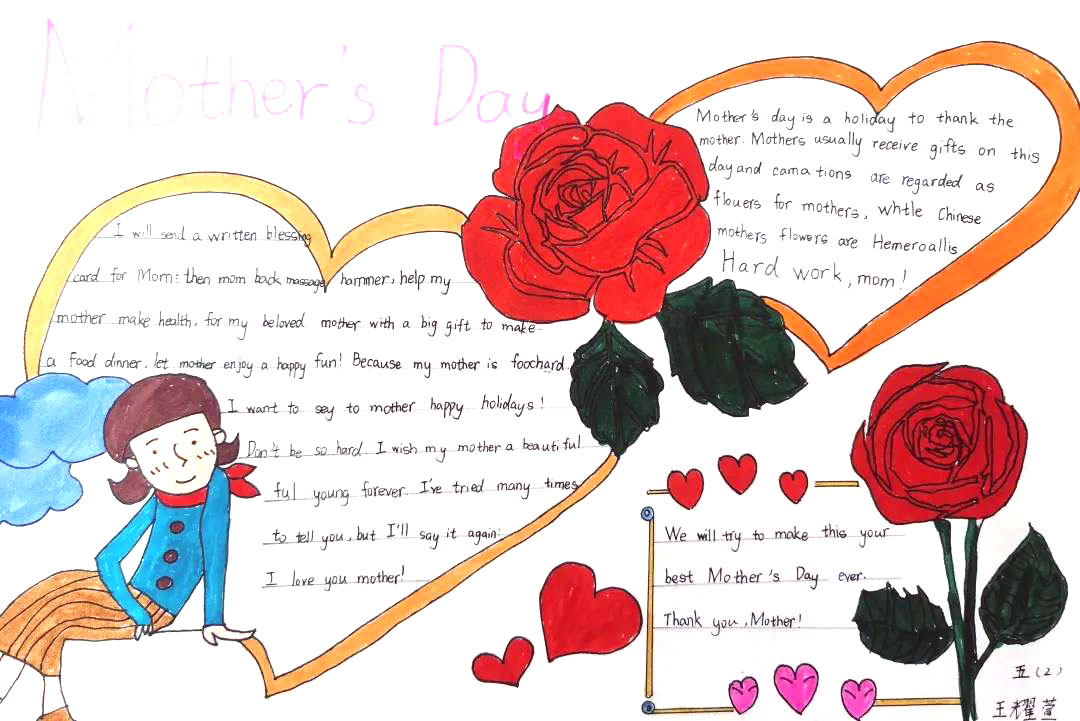 Mother's Day
I will send a written blessing
card for Mom: then mom back massage hammer, help my
mother make health, for my beloved mother with a big gift to make
a food dinner, let mother enjoy a happy fun! Because my mother is foochard.
I want to sey to mother happy holidays!
Don't be so hard. I wish my mother a beautiful
ful young forever. I've tried many times
to tell you, but I'll say it again:
I love you mother!
Mother's day is a holiday to thank the
mother. Mothers usually receive gifts on this
day and camations are regarded as
flouers for mothers, whtle Chinese
mothers flowers are Hemeroallis
Hard work, mom!
We will try to make this your
best Mother's Day ever.
Thank you, Mother!
五(2)
王耀萱